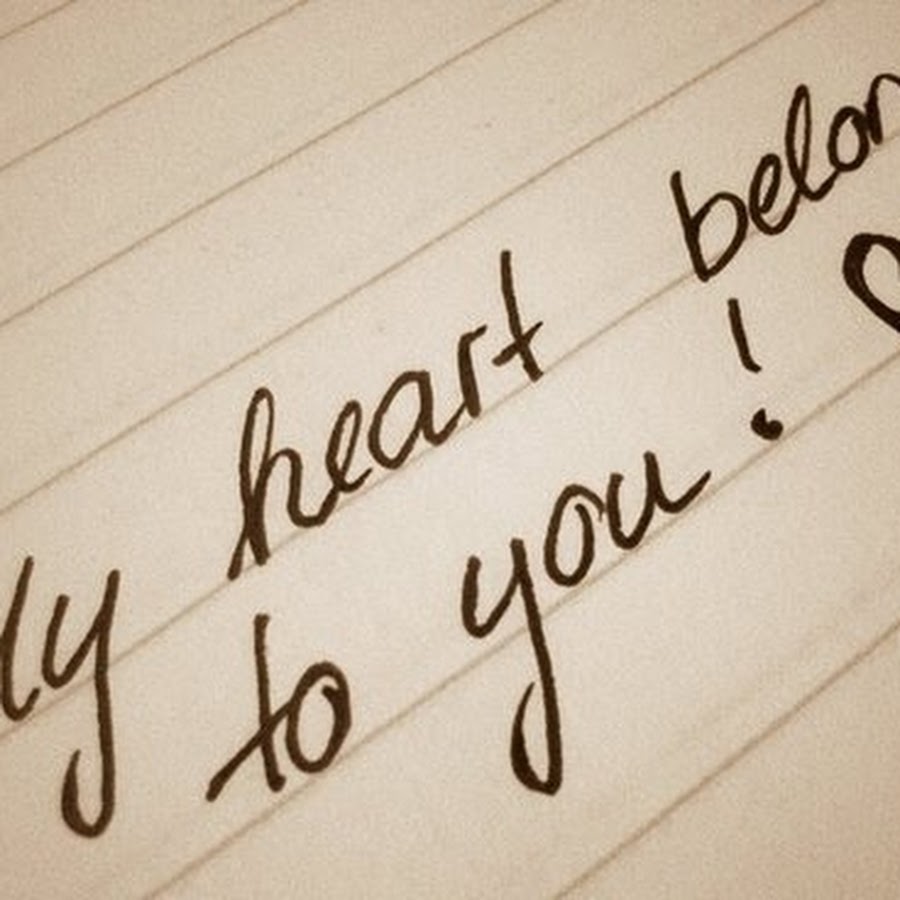 My heart belon
to you!